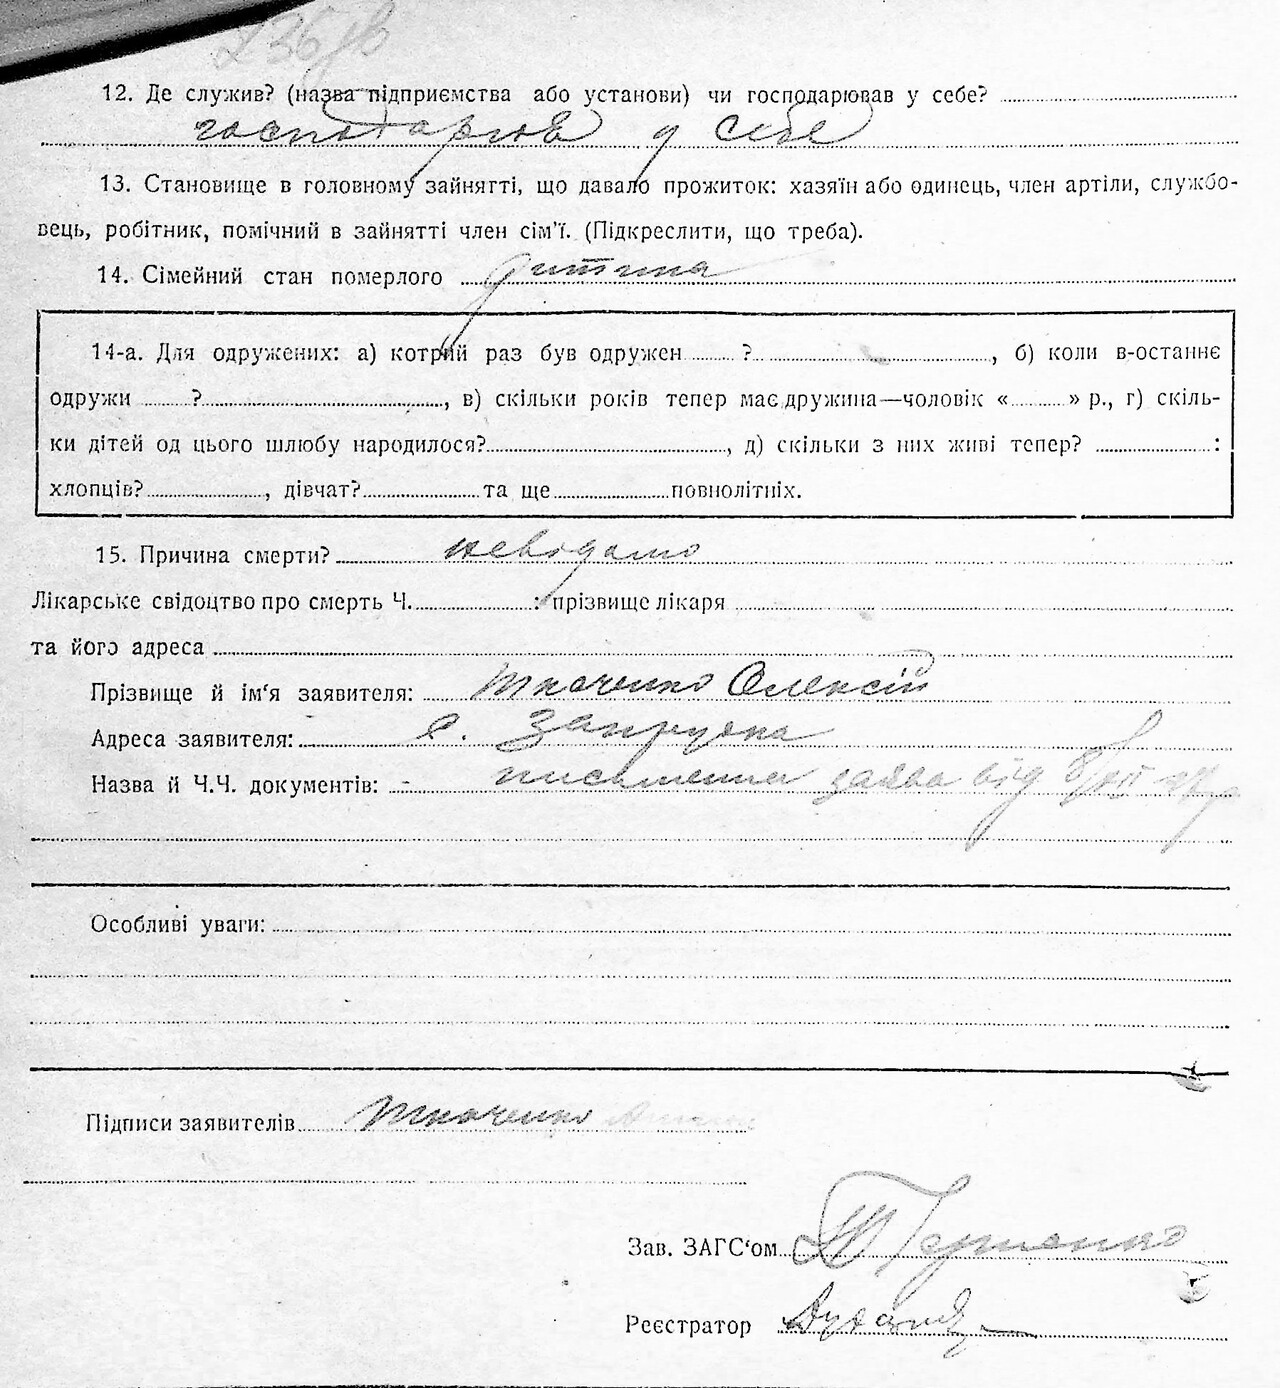 12. Де служив? (назва підприємства або установи) чи господарював у себе?
господарюв у себе
13. Становище в головному зайнятті, що давало прожиток: хазяїн або одинець, член артіли, службо-
вець, робітник, помічний в зайнятті член сім'ї. (Підкреслити, що треба).
14. Сімейний стан померлого дитина
14-а. Для одружених: а) котрий раз був одружен ? , б) коли в-останнє
одружи ? , в) скільки років тепер має дружина—чоловік « » р., г) скіль-
ки дітей од цього шлюбу народилося? , д) скільки з них живі тепер? :
хлопців? , дівчат? та ще повнолітніх.
15. Причина смерти? невідомо
Лікарське свідоцтво про смерть Ч. : прізвище лікаря
та його адреса
Прізвище й ім'я заявителя: Ткаченко Олексій
Адреса заявителя: с. Запрудка
Назва й Ч.Ч. документів: - письменна заява від
Особливі уваги:
Підписи заявителів Ткаченко
Зав. ЗАГС'ом
Реєстратор